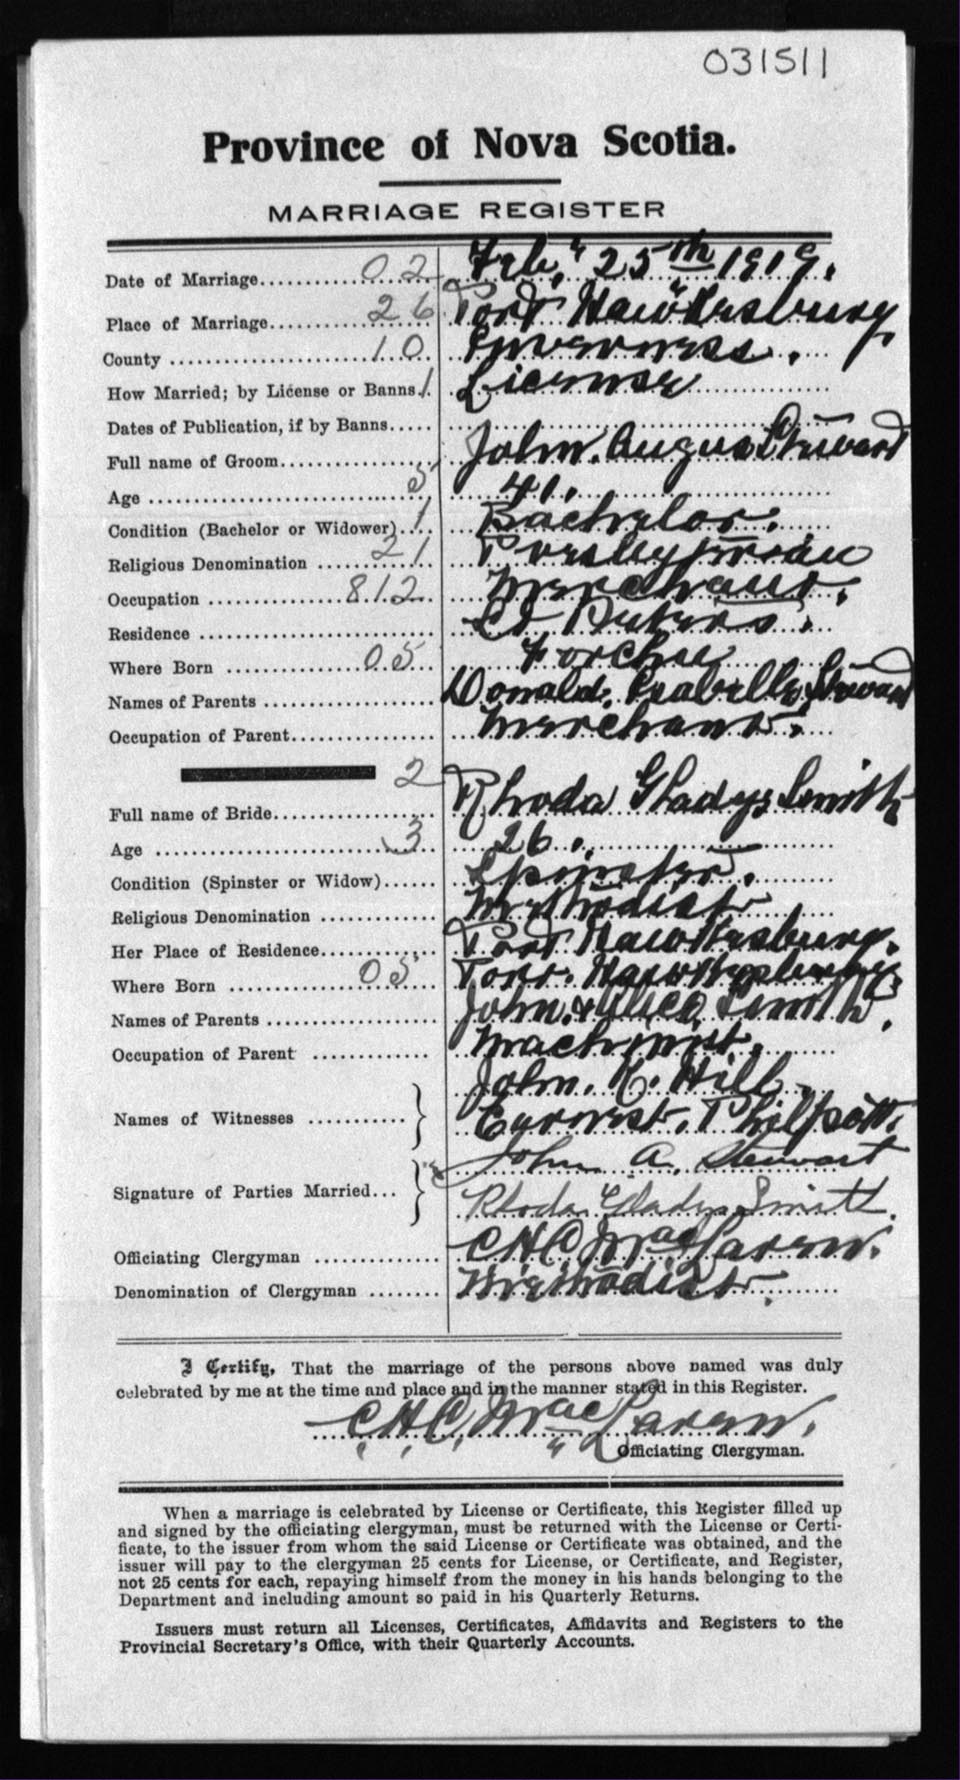 031511
Province of Nova Scotia.
MARRIAGE REGISTER
Date of Marriage 02 Feb. 25th 1919.
Place of Marriage 26 Port Hawkesbury
County 10 Inverness.
How Married; by License or Banns 1 License
Dates of Publication, if by Banns
Full name of Groom John. Angus Stewart
Age 5 41.
Condition (Bachelor or Widower) 1 Bachelor.
Religious Denomination 21 Presbyterian
Occupation 812 Merchant.
Residence St Peters.
Where Born 05 Forchu
Names of Parents Donald. Isabella Stewart
Occupation of Parent Merchant.
2
Full name of Bride Rhoda Gladys Smith
Age 3 26.
Condition (Spinster or Widow) Spinster.
Religious Denomination Methodist
Her Place of Residence Port Hawkesbury.
Where Born 05 Port. Hawkesbury
Names of Parents John. & Alice Smith.
Occupation of Parent Machinist.
Names of Witnesses John. K. Hill.
Earnest. Philpott.
Signature of Parties Married John A. Stewart
Rhoda Gladys Smith.
Officiating Clergyman C H C MacLaren.
Denomination of Clergyman Methodist.
I Certify, That the marriage of the persons above named was duly
celebrated by me at the time and place and in the manner stated in this Register.
C. H. C. MacLaren.
Officiating Clergyman.
When a marriage is celebrated by License or Certificate, this Register filled up
and signed by the officiating clergyman, must be returned with the License or Certi-
ficate, to the issuer from whom the said License or Certificate was obtained, and the
issuer will pay to the clergyman 25 cents for License, or Certificate, and Register,
not 25 cents for each, repaying himself from the money in his hands belonging to the
Department and including amount so paid in his Quarterly Returns.
Issuers must return all Licenses, Certificates, Affidavits and Registers to the
Provincial Secretary's Office, with their Quarterly Accounts.